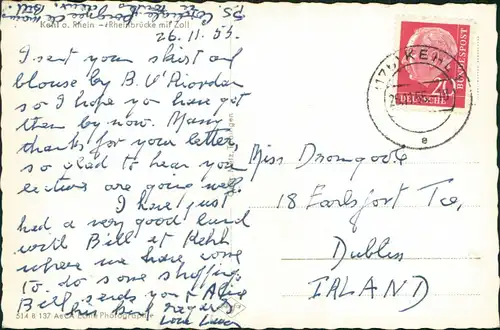 Kehl a. Rhein – Rheinbrücke mit Zoll
26.11.55.
I sent your skirt and
blouse by B. O'Riordan
so I hope you have got
them by now. Many
thanks for your letter,
so glad to hear your
lectures are going well.
I have just
had a very good lunch
with Bill at Kehl
where we have come
to do some shopping.
Bill sends you &
his best regards
Love
514 R 137 Echte Photographie
Miss Dromgoole
18 Earlsfort Tce,
Dublin
IRLAND
KEHL
e
20
DEUTSCHE
BUNDESPOST